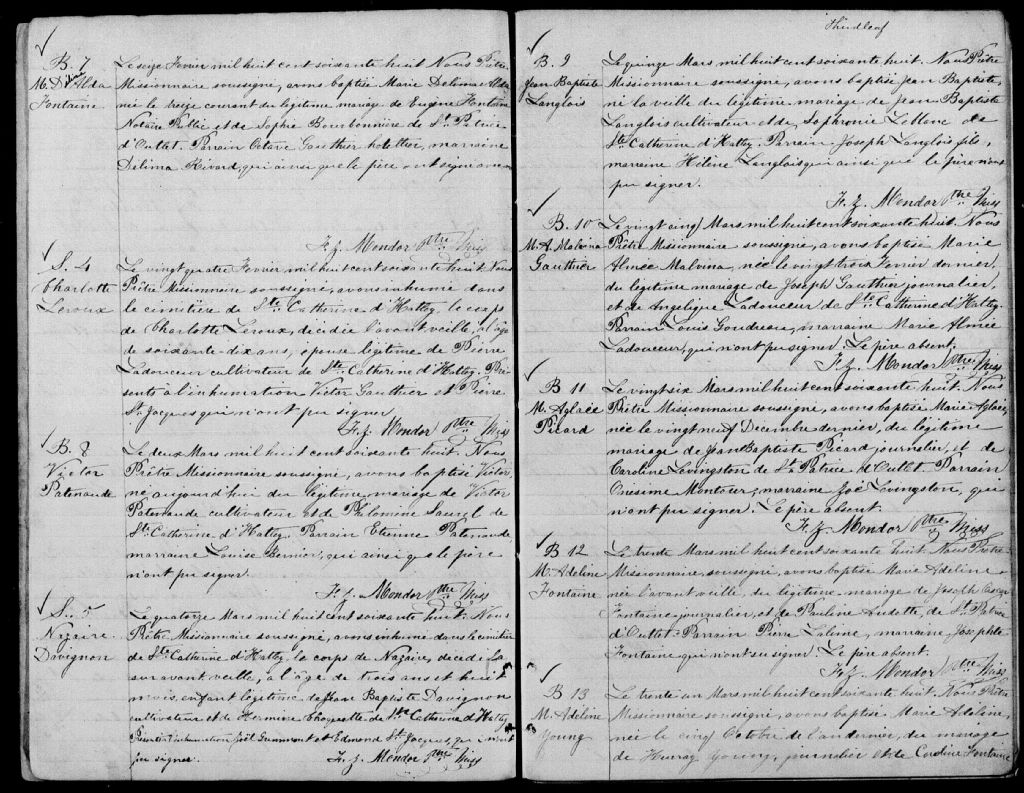 B. 7
M. D. Alda
Fontaine
Le seize Fevrier mil huit cent soixante huit Nous Prêtre
Missionnaire soussigné, avons baptisé Marie Delima Alda
née le treize courant du légitime mariage de Eugène Fontaine
Notaire Public et de Sophie Bourbonnière de St Patrice
d'Outlet. Parrain Octave Gauthier hotellier, marraine
Delima Rivard, qui ainsi que le père ont signé avec nous
F. Z. Mondor Ptre Miss
S. 4
Charlotte
Leroux
Le vingt quatre Fevrier mil huit cent soixante huit. Nous
Prêtre Missionnaire soussigné, avons inhumé dans
le cimetière de Ste Catherine d'Hatley, le corps
de Charlotte Leroux, décédée l'avant veille, à l'âge
de soixante-dix ans, épouse légitime de Pierre
Ladouceur cultivateur de Ste Catherine d'Hatley. Pré-
sents à l'inhumation Victor Gauthier et Pierre
St Jacques qui n'ont pu signer
F. Z. Mondor Ptre Miss
B. 8
Victor
Patenaude
Le deux Mars mil huit cent soixante huit. Nous
Prêtre Missionnaire soussigné, avons baptisé Victor,
né aujourd'hui du légitime mariage de Victor
Patenaude cultivateur et de Philomine de
Ste Catherine d'Hatley. Parrain Etienne Patenaude
marraine Louise Bernier, qui ainsi q le père
n'ont pu signer.
F. Z. Mondor Ptre Miss
S. 5
Nazaire
Davignon
Le quatorze Mars mil huit cent soixante huit. Nous
Prêtre Missionnaire soussigné, avons inhumé dans le cimitière
de Ste Catherine d'Hatley, le corps de Nazaire, décédé la
suravant veille, à l'âge de trois ans et huit
mois, enfant légitime de Jean Baptiste Davignon
cultivateur et de Hermine Choquette de Ste Catherine d'Hatley
Présents à l'inhumation Joël Grammont et Edmond St Jacques, qui n'ont
pu signer.
F. Z. Mondor Ptre Miss
Third leaf
B. 9
Jean Baptiste
Langlois
Le quinze Mars mil huit cent soixante huit. Nous Prêtre
Missionnaire soussigné, avons baptisé Jean Baptiste,
né la veille du légitime mariage de Jean Baptiste
Langlois cultivateur et de Sophronie Leblanc de
Ste Catherine d'Hatley. Parrain Joseph Langlois fils,
marraine Hélène Langlois qui ainsi que le père n'ont
pu signer.
F. Z. Mondor Ptre Miss
B. 10
M. A. Malvina
Gauthier
Le vingt cinq Mars mil huit cent soixante huit. Nous
Prêtre Missionnaire soussigné, avons baptisé Marie
Almée Malvina, née le vingt trois Fevrier dernier,
du légitime mariage de Joseph Gauthier journalier,
et de Angelique Ladouceur de Ste Catherine d'Hatley.
Parrain Louis Goudreau, marraine Marie Almée
Ladouceur, qui n'ont pu signer. Le père absent.
F. Z. Mondor Ptre Miss
B 11
M. Aglaée
Picard
Le vingt six Mars mil huit cent soixante huit. Nous
Prêtre Missionnaire soussigné, avons baptisé Marie Aglaée,
née le vingt neuf Decembre dernier, du légitime
mariage de Jean Baptiste Picard journalier, et de
Caroline Livingston de St Patrice d'Outlet Parrain
Onesime Montour, marraine Livingston, qui
n'ont pu signer. Le père absent.
F. Z. Mondor Ptre Miss
B 12
M. Adeline
Fontaine
Le trente Mars mil huit cent soixante huit. Nous Prêtre
Missionnaire, soussigné, avons baptisé Marie Adeline
née l'avant veille, du légitime mariage de Joseph
Fontaine journalier, et de Pauline Audette, de St Patrice
d'Outlet. Parrain Pierre Lalune, marraine, Josephte
Fontaine qui n'ont su signer. Le père absent.
F. Z. Mondor Ptre Miss
B 13
M. Adeline
Young
Le trente un Mars mil huit cent soixante huit. Nous Prêtre
Missionnaire soussigné, avons baptisé Marie Adeline,
née le cinq Octobre de l'an dernier, du mariage
de Murray Young, journalier et de Caroline Fontaine